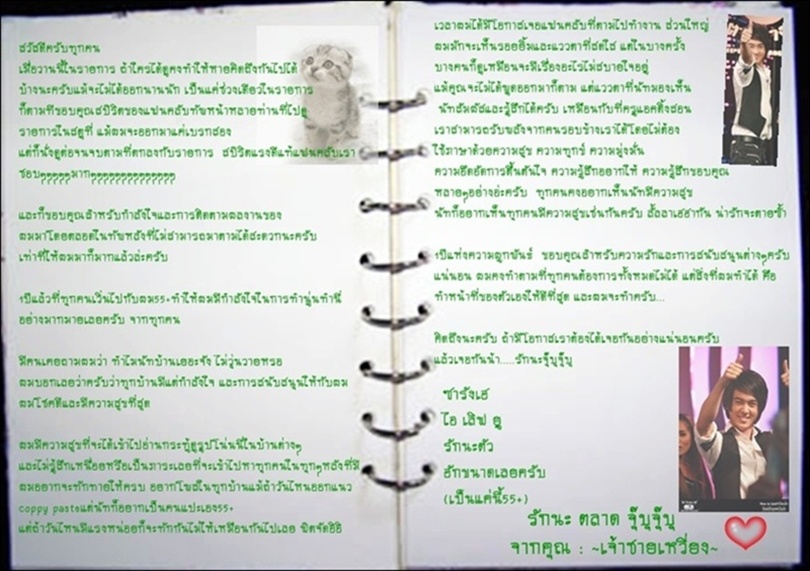 สวัสดีครับทุกคน
เมื่อวานนี้ในรายการ ถ้าใครได้ดูคงทำให้หายคิดถึงกันไปได้
บ้างนะครับแม้จะไม่ได้ออกนานนัก เป็นแค่ช่วงเดียวในรายการ
ก็ตามทีขอบคุณสปิริตของแฟนคลับทัพหน้าหลายท่านที่ไปดู
รายการในสตูที่ แม้ผมจะออกมาแค่เบรกสอง
แต่ก็นั่งดูต่อจนจบตามที่ตกลงกับรายการ สปิริตแรงดีแท้แฟนคลับเรา
ชอบๆๆๆๆๆมากๆๆๆๆๆๆๆๆๆๆๆๆๆๆ
และก็ขอบคุณสำหรับกำลังใจและการติดตามผลงานของ
ผมมาโดยตลอดในทัพหลังที่ไม่สามารถมาตามได้สะดวกนะครับ
เท่าที่ให้ผมมาก็มากแล้วล่ะครับ
1ปีแล้วที่ทุกคนเวิ่นไปกับผม55+ทำให้ผมมีกำลังใจในการทำนู่นทำนี่
อย่างมากมายเลยครับ จากทุกคน
มีคนเคยถามผมว่า ทำไมนัทบ้านเยอะจัง ไม่วุ่นวายหรอ
ผมบอกเลยว่าครับว่าทุกบ้านมีแต่กำลังใจ และการสนับสนุนให้กับผม
ผมโชคดีและมีความสุขที่สุด
ผมมีความสุขที่จะได้เข้าไปอ่านกระทู้ดูรูปโน่นนี่ในบ้านต่างๆ
และไม่รู้สึกเหนื่อยหรือเป็นภาระเลยที่จะเข้าไปหาทุกคนในทุกๆหลังที่มี
ผมอยากจะทักทายให้ครบ อยากโพสในทุกบ้านแม้ถ้าวันไหนออกแนว
coppy pasteแต่นัทก็อยากเป็นคนแปะเอง55+
แต่ถ้าวันไหนมีแรงหน่อยก็จะทักกันไม่ให้เหมือนกันไปเลย ฟิตจัดอิอิ
เวลาผมได้มีโอกาสเจอแฟนคลับที่ตามไปทำงาน ส่วนใหญ่
ผมมักจะเห็นรอยยิ้มและแววตาที่สดใส แต่ในบางครั้ง
บางคนก็ดูเหมือนจะมีเรื่องอะไรไม่สบายใจอยู่
แม้คุณจะไม่ได้พูดออกมาก็ตาม แต่แววตาที่นัทมองเห็น
นัทสัมผัสและรู้สึกได้ครับ เหมือนกับที่ครูแอคติ้งสอน
เราสามารถรับพลังจากคนรอบข้างเราได้โดยไม่ต้อง
ใช้ภาษาด้วยความสุข ความทุกข์ ความมุ่งมั่น
ความอึดอัดการตื้นตันใจ ความรู้สึกอยากให้ ความรู้สึกขอบคุณ
หลายๆอย่างอ่ะครับ ทุกคนคงอยากเห็นนัทมีความสุข
นัทก็อยากเห็นทุกคนมีความสุขเช่นกันครับ ลั้ลลาเฮฮากัน น่ารักจะตายซ้ำ
1ปีแห่งความผูกพันธ์ ขอบคุณสำหรับความรักและการสนับสนุนต่างๆครับ
แน่นอน ผมคงทำตามที่ทุกคนต้องการทั้งหมดไม่ได้ แต่สิ่งที่ผมทำได้ คือ
ทำหน้าที่ของตัวเองให้ดีที่สุด และผมจะทำครับ...
คิดถึงนะครับ ถ้ามีโอกาสเราต้องได้เจอกันอย่างแน่นอนครับ
แล้วเจอกันน้า.....รักนะจุ๊บจุ๊บ
ซารังเฮ
ไอ เลิฟ ยู
รักนะตัว
อักขนาดเลยครับ
(เป็นแค่นี้55+)
รักนะ ตลาด จุ๊บุจุ๊บุ
จากคุณ : ~เจ้าชายเหวี่ยง~